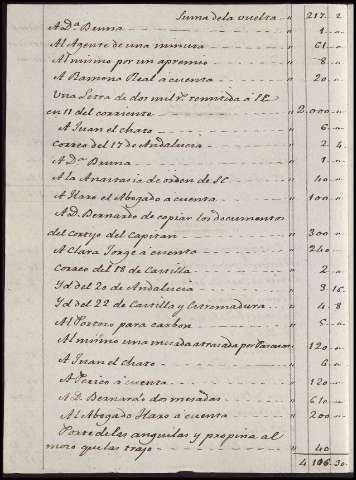 Suma de la vuelta - - " 217. 2
A Dª Bruna - - " 1 -
Al Agente de una minuta - - " 61 -
Al mismo por un apremio - - " 8 -
A Ramona Real a cuenta - - " 20 -
Una Letra de dos mil rˢ remitida á
en 11 del corriente - - " 2.000 -
A Juan el chato - - " 6 -
Correo del 17 de Andalucia - - " 2. 4.
A Dª Bruna - - " 1 -
A la Anastasia de orden de SE - - " 40 -
A Haro el Abogado a cuenta - - " 100 -
A D. Bernardo de copiar los documentos
del Cortijo del Capitan - - " 300 -
A Clara Jorge á cuenta - - " 240 -
Correo del 18 de Castilla - - " 2 -
Yd del 20 de Andalucia - - " 3. 16.
Yd del 22 de Castilla y Estremadura - - " 4. 8
Al Portero para carbon - - " 5 -
Al mismo una mesada atrasada por - - " 120 -
A Juan el chato - - " 6 -
A Perico á cuenta - - " 120 -
A D. Bernardo dos mesadas - - " 610 -
Al Abogado Haro á cuenta - - " 200 -
Porte de las anguilas y propina al
mozo que las trajo - - " 40
30.